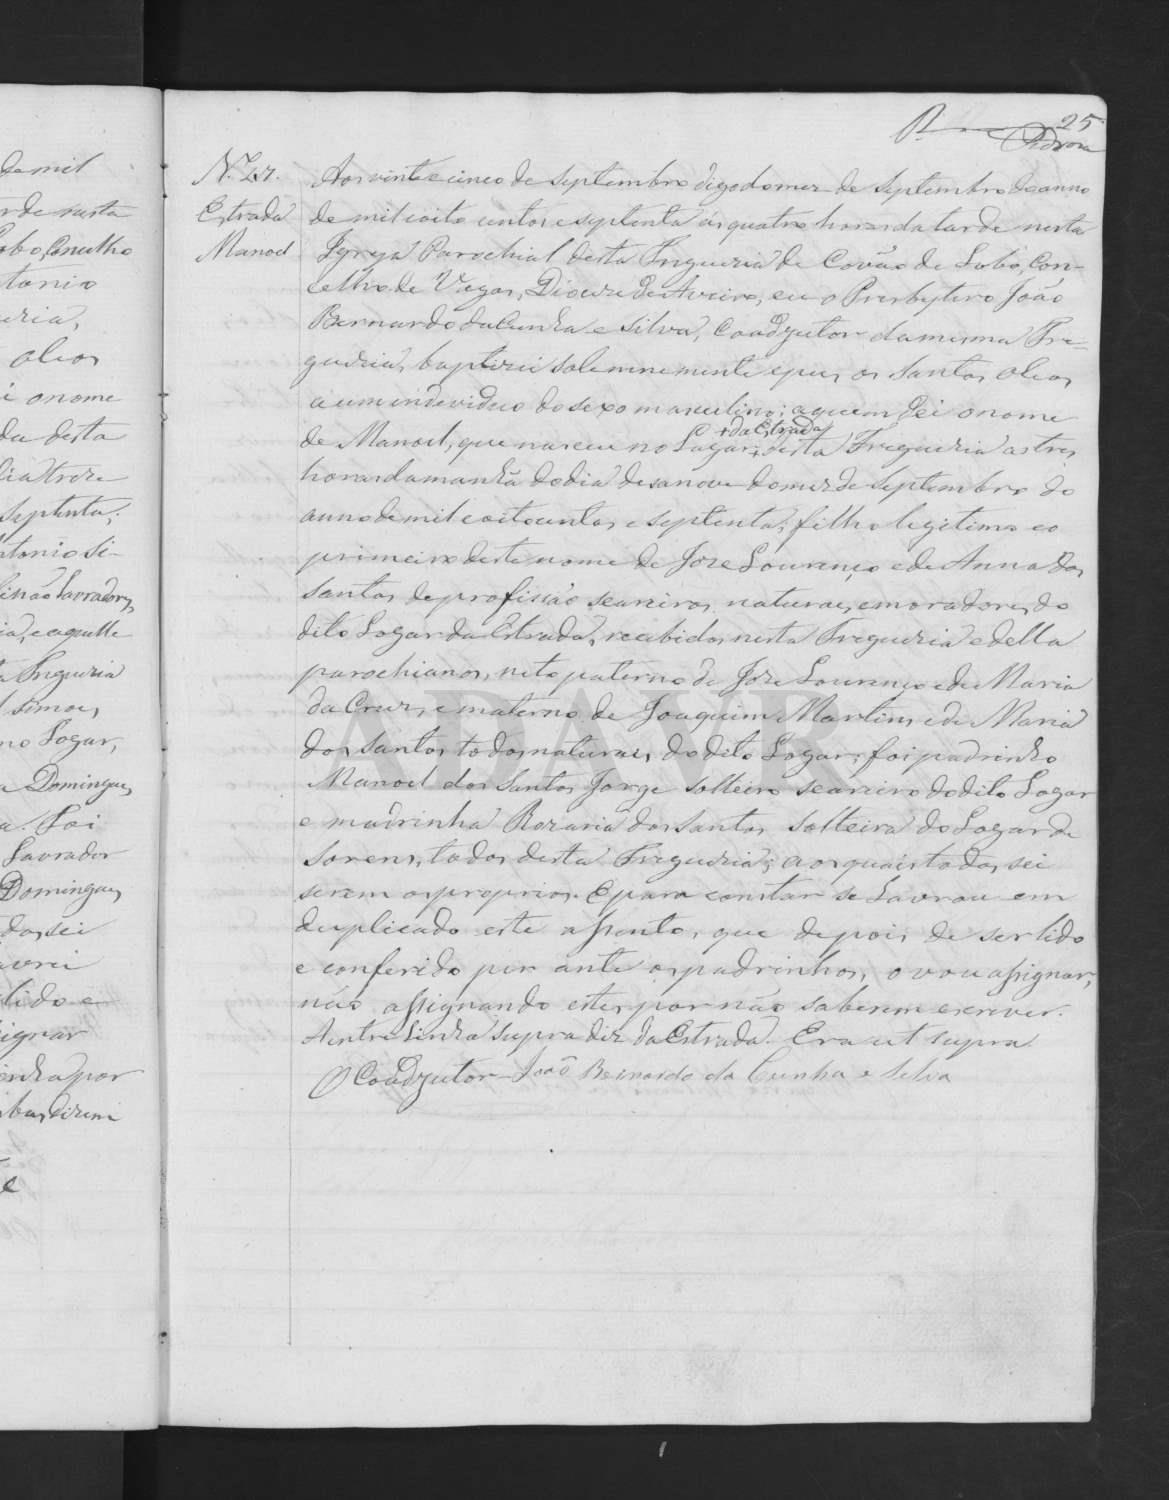 25
de mil
de nesta
Lobo, Concelho
tonio
uria,
oleos
i o nome
da desta
dia treze
Septenta;
ntonio Si-
Lavradores,
ia, e aquelle
a Freguezia
Simoes,
no Logar,
a Domingues,
a. Foi
Lavrador
Domingues,
dos, sei
avrei
lido e
signar
inha por
N.º 47.
Estrada
Manoel
Aos vinte e cinco de Septembro digo do mez de Septembro do anno
de mil e oito centos e septenta ás quatro horas da tarde nesta
Igreja Parochial desta Freguezia de Covão de Lobo, Con-
celho de Vagos, Diocese de Aveiro, eu o Presbytero João
Bernardo da Cunha e Silva, Coadjutor da mesma Fre-
guezia, baptizei solemnemente e puz os Santos Oleos
a um individuo do sexo masculino; a quem dei o nome
+ da Estrada
de Manoel, que nasceu no Logar + desta Freguezia as tres
horas da manhã do dia desanove do mez de Septembro do
anno de mil e oitocentos e septenta, filho legitimo e o
primeiro deste nome de Joze Lourenço e de Anna dos
Santos de profissão seareiros, naturaes, e moradores do
dito Logar da Estrada, recebidos nesta Freguezia e della
parochianos, neto paterno de Joze Lourenço e de Maria
da Cruz, e materno de Joaquim Martins e de Maria
dos Santos todos naturaes, do dito Logar; foi padrinho
Manoel dos Santos Jorge solteiro seareiro do dito Logar
e madrinha Rozaria dos Santos solteira do Logar de
Sorens, todos desta Freguezia; aos quaes todos, sei
serem os proprios. E para constar se Lavrou em
duplicado este assento, que depois de ser lido
e conferido per ante os padrinhos, o vou assignar,
não assignando estes por não saberem escrever.
A entre Linha supra diz da Estrada. Era ut supra
O Coadjutor João Bernardo da Cunha e Silva
ADAVR